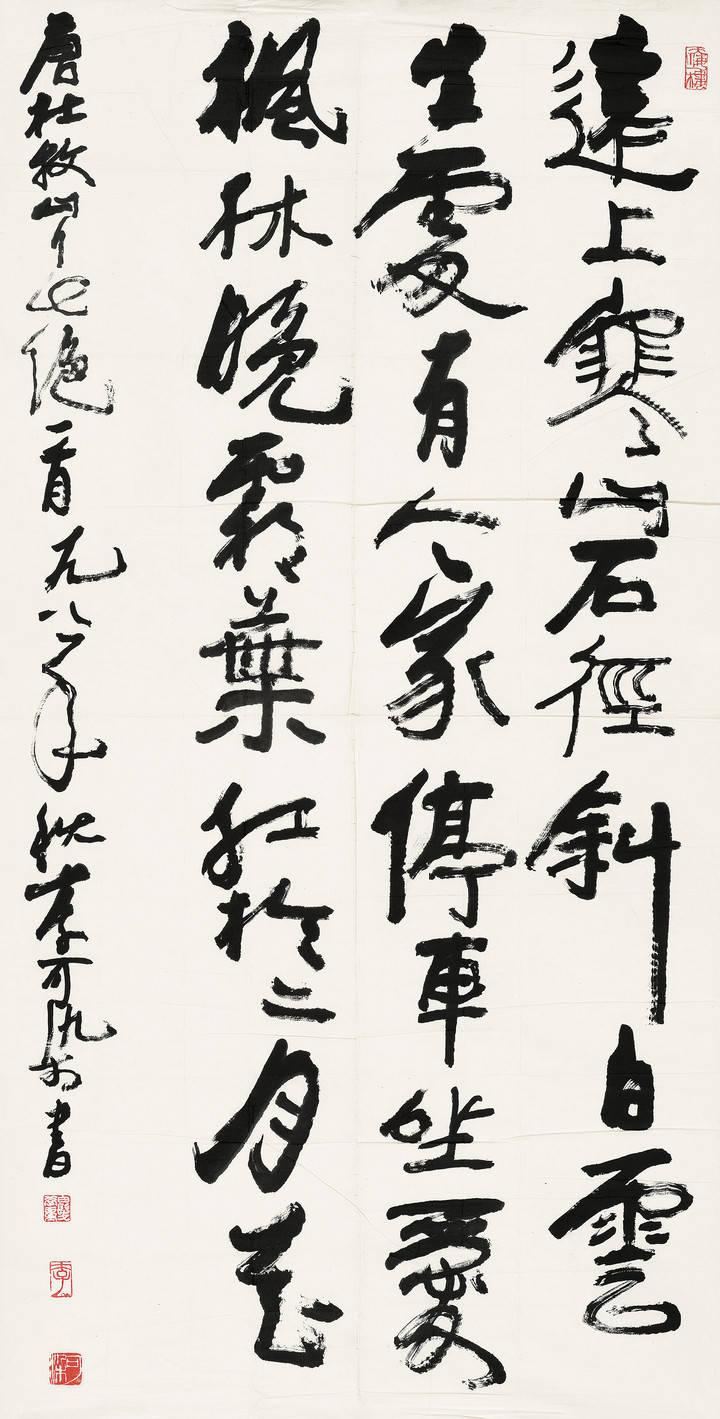 遠上寒山石徑斜白雲
生處有人家停車坐愛
楓林晚霜葉紅於二月花
唐杜牧山行七絕一首九八年秋李可染書
李
可染